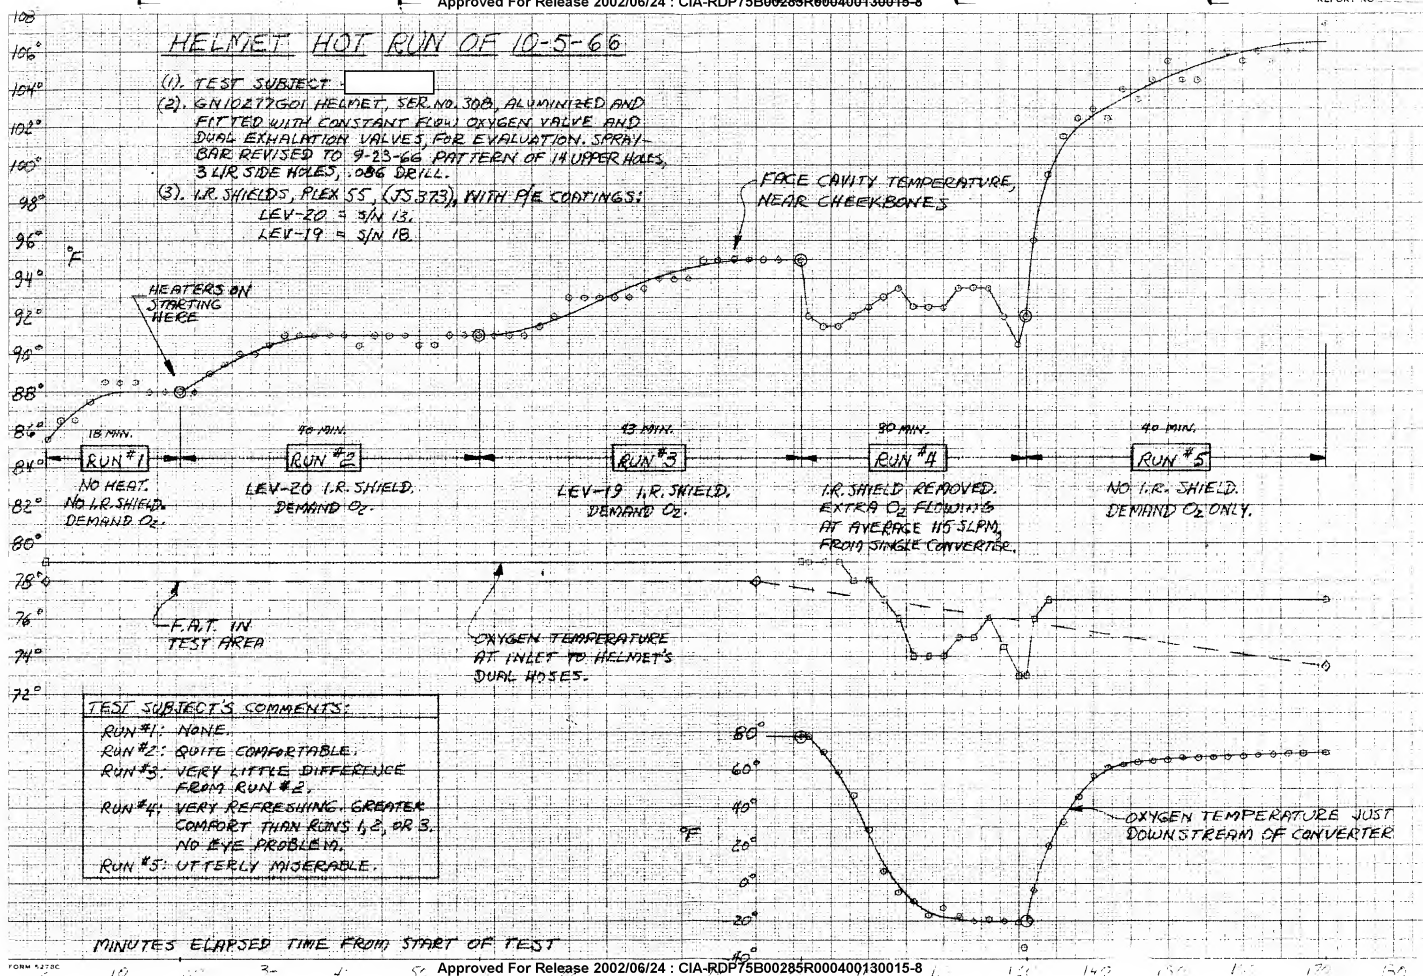 Approved For Release 2002/06/24 : CIA-RDP75B00285R000400130015-8
HELMET HOT RUN OF 10-5-66
(1). TEST SUBJECT -
(2). GN10277G01 HELMET, SER. NO. 308, ALUMINIZED AND
FITTED WITH CONSTANT FLOW OXYGEN VALVE AND
DUAL EXHALATION VALVES, FOR EVALUATION. SPRAY-
BAR REVISED TO 9-23-66 PATTERN OF 14 UPPER HOLES,
3 L/R SIDE HOLES, .086 DRILL.
(3). I.R. SHIELDS, PLEX 55, (JS 373), WITH P/E COATINGS:
LEV-20 = S/N 13.
LEV-19 = S/N 18.
108°
106°
104°
102°
100°
98°
96°
°F
94°
92°
90°
88°
86°
84°
82°
80°
78°
76°
74°
72°
FACE CAVITY TEMPERATURE,
NEAR CHEEKBONES
HEATERS ON
STARTING
HERE
18 MIN.
40 MIN.
43 MIN.
30 MIN.
40 MIN.
RUN #1
RUN #2
RUN #3
RUN #4
RUN #5
NO HEAT.
NO I.R. SHIELD.
DEMAND O2.
LEV-20 I.R. SHIELD.
DEMAND O2.
LEV-19 I.R. SHIELD.
DEMAND O2.
I.R. SHIELD REMOVED.
EXTRA O2 FLOWING
AT AVERAGE 115 SLPM,
FROM SINGLE CONVERTER.
NO I.R. SHIELD.
DEMAND O2 ONLY.
F.A.T. IN
TEST AREA
OXYGEN TEMPERATURE
AT INLET TO HELMET'S
DUAL HOSES.
TEST SUBJECT'S COMMENTS:
RUN #1: NONE.
RUN #2: QUITE COMFORTABLE.
RUN #3: VERY LITTLE DIFFERENCE
FROM RUN #2.
RUN #4: VERY REFRESHING. GREATER
COMFORT THAN RUNS 1, 2, OR 3.
NO EYE PROBLEM.
RUN #5: UTTERLY MISERABLE.
80°
60°
40°
°F
20°
0°
-20°
OXYGEN TEMPERATURE JUST
DOWNSTREAM OF CONVERTER
MINUTES ELAPSED TIME FROM START OF TEST
FORM 5278C
Approved For Release 2002/06/24 : CIA-RDP75B00285R000400130015-8